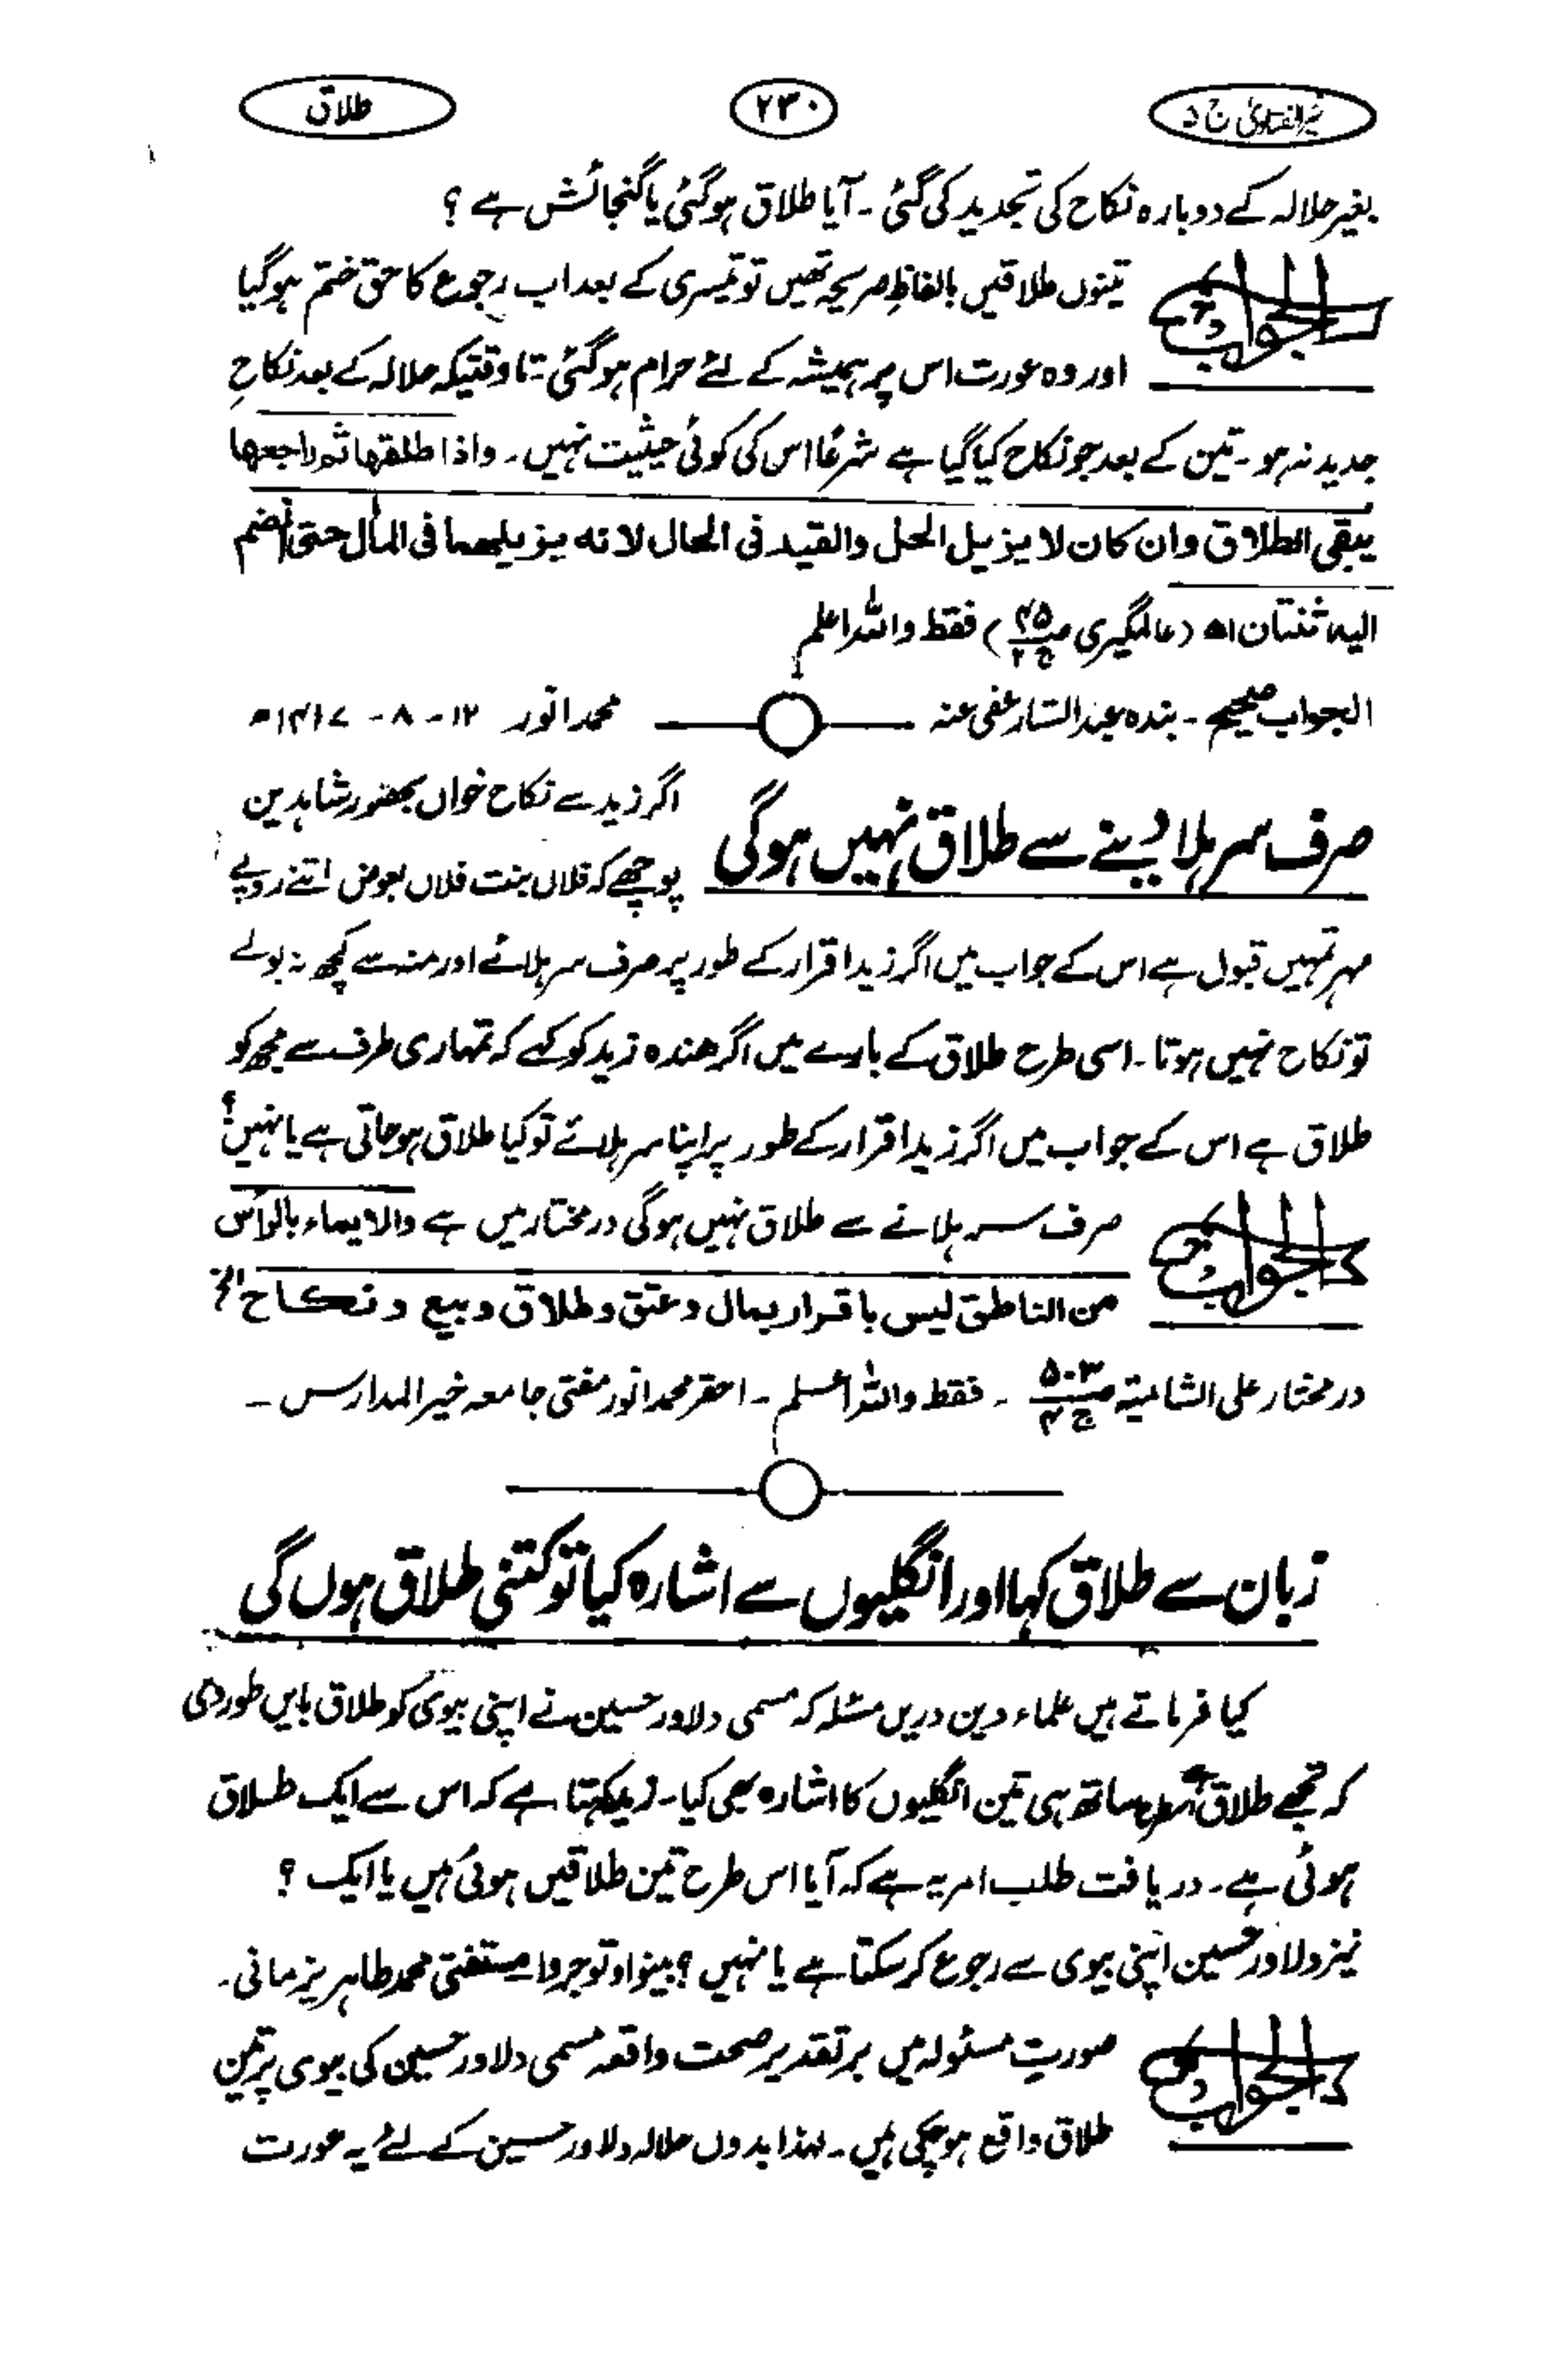 خیر الفتاویٰ ج ۵
۲۳۰
طلاق
بغیر حلالہ کے دوبارہ نکاح کی تجدید کی گئی۔ آیا طلاق ہوگئی یا گنجائش ہے ؟
الجواب
تینوں طلاقیں بالفاظِ صریحہ تھیں تو تیسری کے بعد اب رجوع کا حق ختم ہوگیا
اور وہ عورت اس پر ہمیشہ کے لئے حرام ہوگئی۔ تاوقتیکہ حلالہ کے بعد نکاحِ
جدید نہ ہو۔ تین کے بعد جو نکاح کیا گیا ہے شرعًا اس کی کوئی حیثیت نہیں۔ واذا طلقها ثم راجعها
یبقی الطلاق وان كان لا یزیل الحل والقید فی الحال لانه یزیلهما فی المآل حتی انضم
الیه ثنتان اھ (عالمگیری ج۲) فقط واللہ اعلم
الجواب صحیح ۔ بندہ عبد الستار عفی عنہ
محمد انور ۱۲ - ۸ - ۱۴۱۷ھ
صرف سر ہلا دینے سے طلاق نہیں ہوگی
اگر زید سے نکاح خواں بحضور شاہدین
پوچھے کہ فلاں بنت فلاں بعوض اتنے روپے
مہر تمہیں قبول ہے اس کے جواب میں اگر زید اقرار کے طور پر صرف سر ہلائے اور منہ سے کچھ نہ بولے
تو نکاح نہیں ہوتا۔ اسی طرح طلاق کے بارے میں اگر ھندہ زید کو کہے کہ تمہاری طرف سے مجھ کو
طلاق ہے اس کے جواب میں اگر زید اقرار کے طور پر اپنا سر ہلائے تو کیا طلاق ہوجاتی ہے یا نہیں؟
الجواب
صرف سر ہلانے سے طلاق نہیں ہوگی درمختار میں ہے والایماء بالرأس
من الناطق لیس باقرار بمال وعتق وطلاق وبیع ونکاح الخ
درمختار علی الشامیۃ ص۵۰۳ ج۴ ۔ فقط واللہ اعلم ۔ احقر محمد انور مفتی جامعہ خیر المدارس ۔
زبان سے طلاق کہا اور انگلیوں سے اشارہ کیا تو کتنی طلاق ہوں گی
کیا فرماتے ہیں علماء دین دریں مسئلہ کہ مسمی دلاور حسین نے اپنی بیوی کو طلاق بایں طور دی
کہ تجھے طلاق ساتھ ہی تین انگلیوں کا اشارہ بھی کیا۔ زید کہتا ہے کہ اس سے ایک طلاق
ہوئی ہے۔ دریافت طلب امر یہ ہے کہ آیا اس طرح تین طلاقیں ہوئی ہیں یا ایک ؟
نیز دلاور حسین اپنی بیوی سے رجوع کرسکتا ہے یا نہیں ؟ بینوا و توجروا۔ مستفتی محمد طاہر یزمانی۔
الجواب
صورتِ مسئولہ میں برتقدیر صحت واقعہ مسمی دلاور حسین کی بیوی پر تین
طلاق واقع ہوچکی ہیں۔ لہٰذا بدوں حلالہ دلاور حسین کے لئے یہ عورت